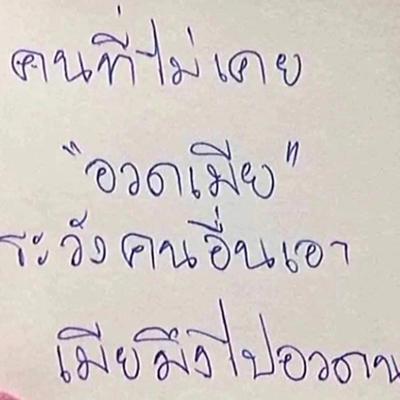 คนที่ไม่เคย
"อวดเมีย"
ระวังคนอื่นเอา
เมียมึงไปอวดน